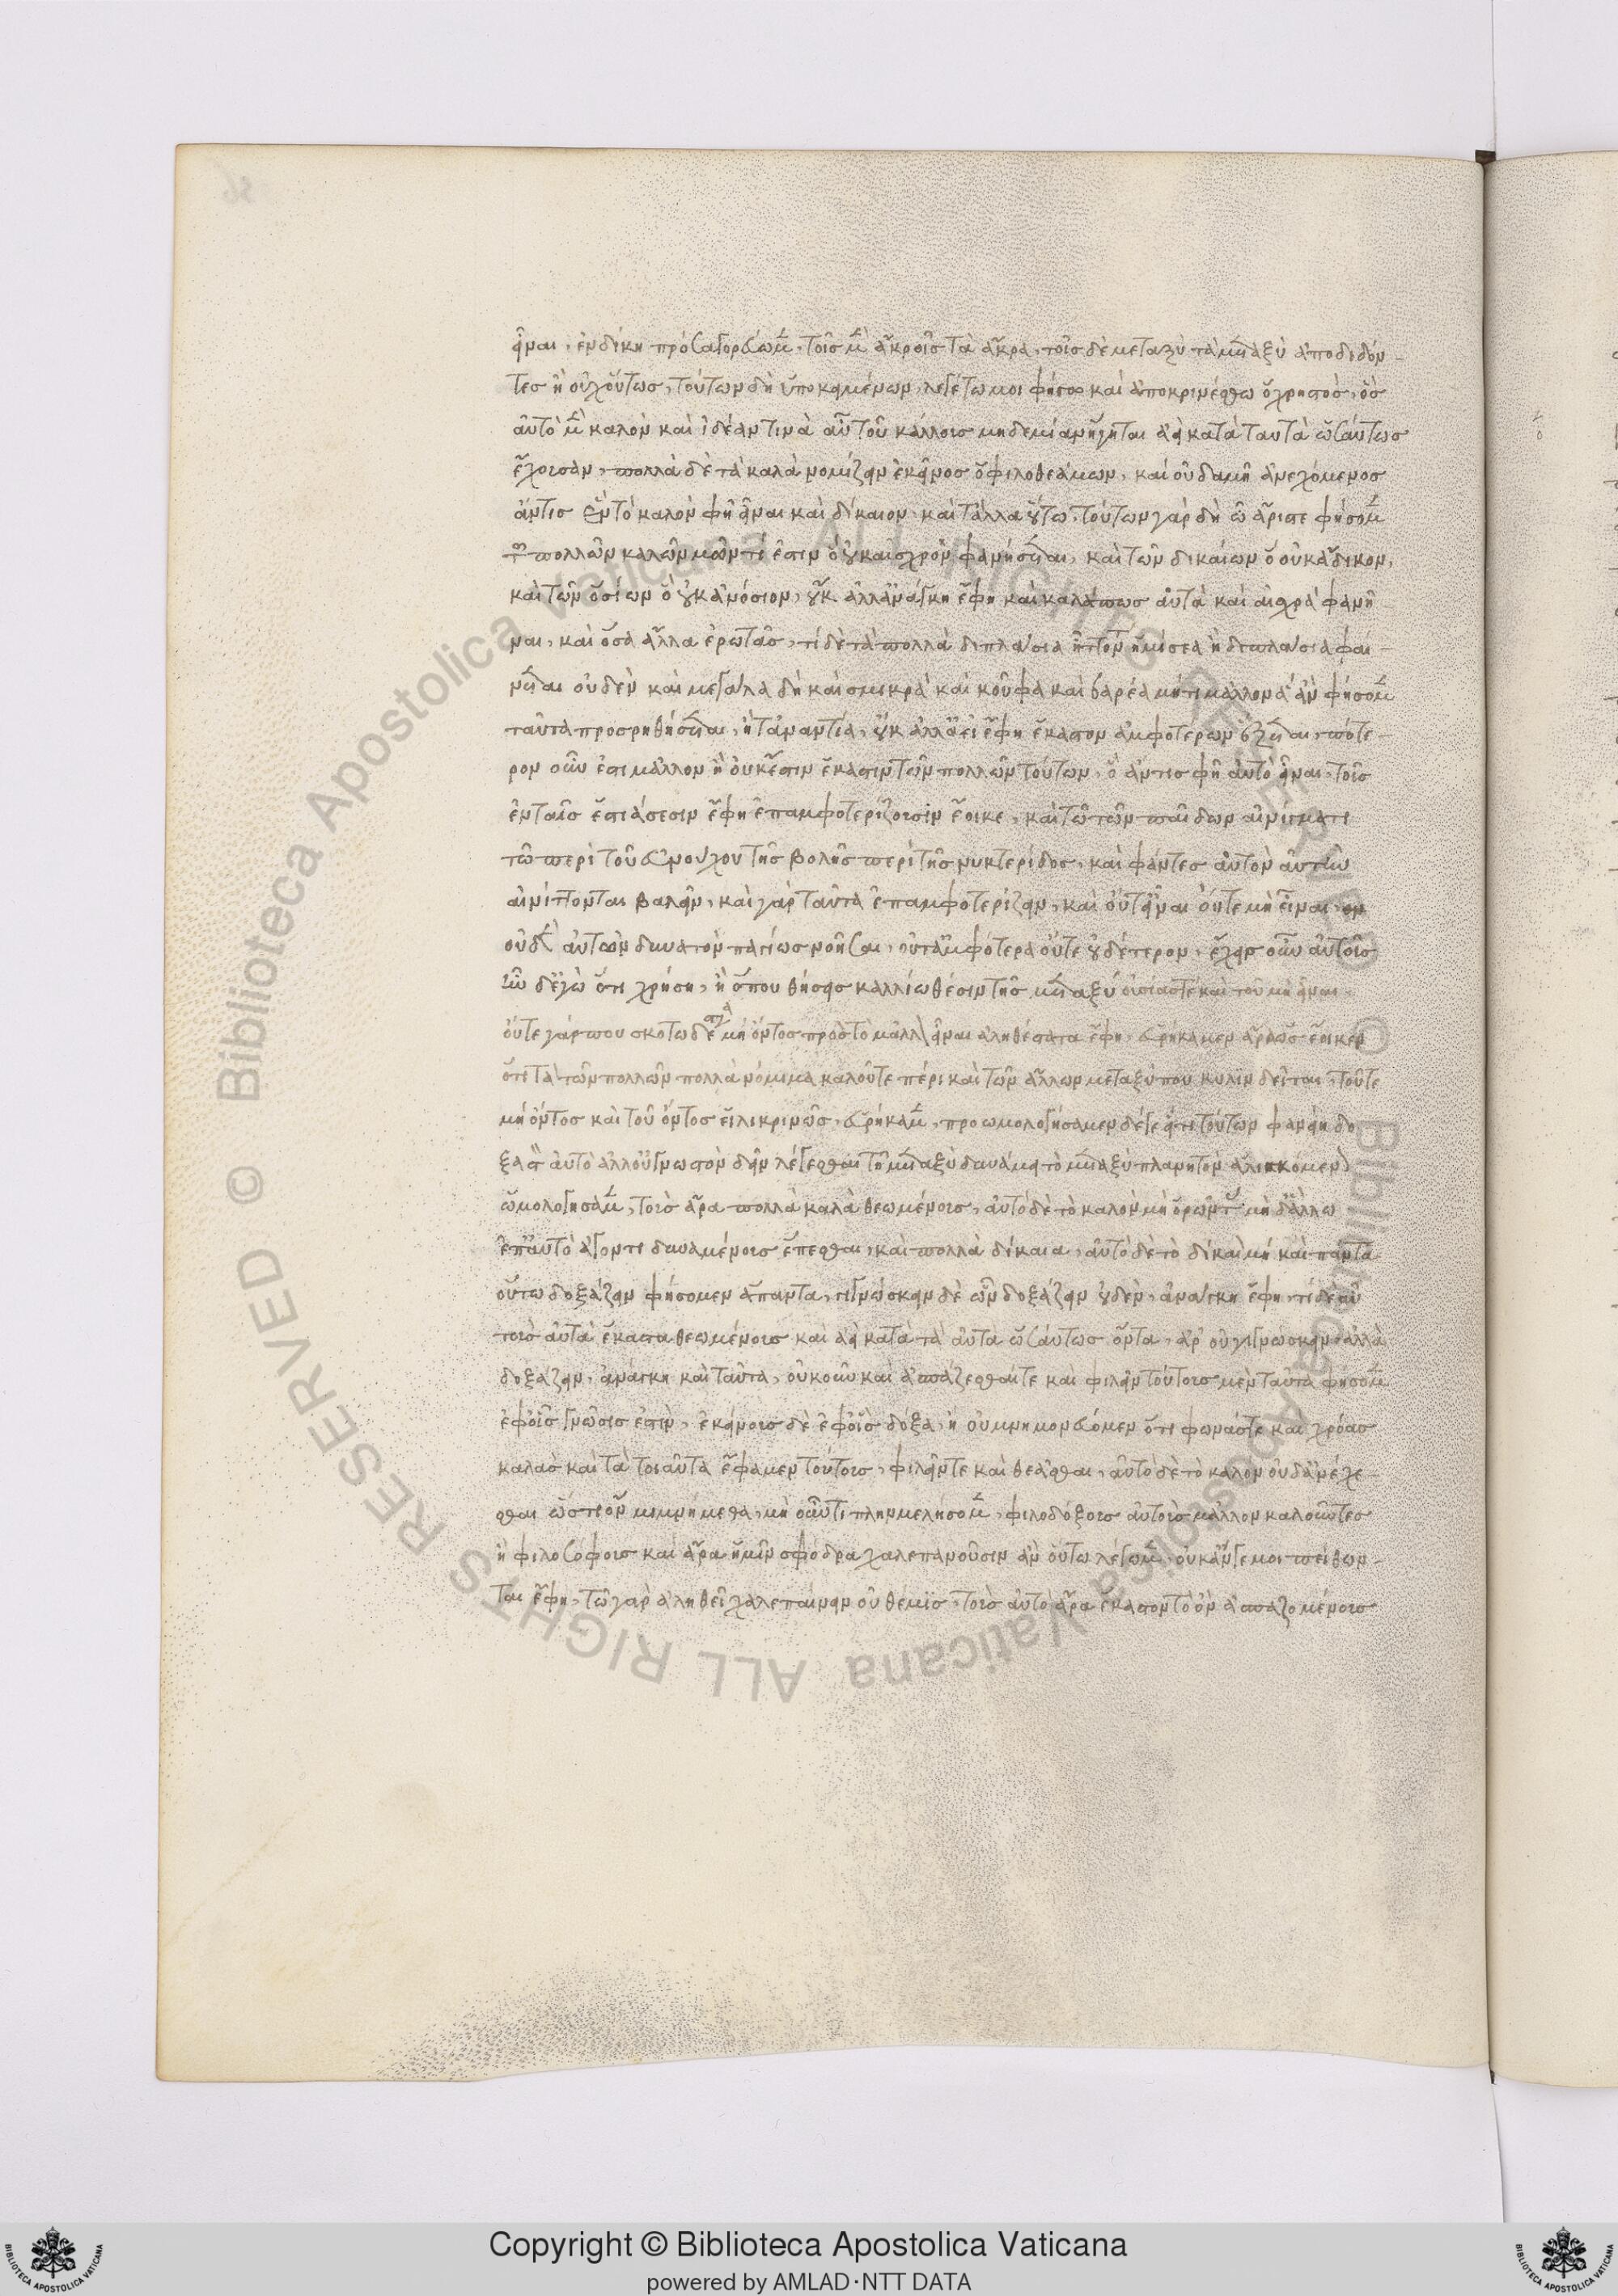 εἶναι, ἐν δίκη προσαγορεύωμεν, τοῖς μὲν ἄκροις τὰ ἄκρα, τοῖς δὲ μεταξὺ τὰ μεταξὺ ἀποδιδόν-
τες ἢ οὐχ οὕτως, τούτων δὴ ὑποκειμένων, λεγέτω μοι φήσω καὶ ἀποκρινέσθω ὁ χρηστὸς, ὃς
αὐτὸ μὲν καλὸν καὶ ἰδέαν τινὰ αὐτοῦ κάλλους μηδεμίαν ἡγῆται ἀεὶ κατὰ ταυτὰ ὡσαύτως
ἔχουσαν, πολλὰ δὲ τὰ καλὰ νομίζειν ἐκεῖνος ὁ φιλοθεάμων, καὶ οὐδαμῆ ἀνεχόμενος
ἄντις ἓν τὸ καλὸν φῆ εἶναι καὶ δίκαιον καὶ τἆλλα οὕτω, τούτων γὰρ δὴ ὦ ἄριστε φήσομεν
τῶν πολλῶν καλῶν μῶν τί ἔστιν ὃ οὐκ αἰσχρὸν φανήσεται, καὶ τῶν δικαίων ὃ οὐκ ἄδικον,
καὶ τῶν ὁσίων ὃ οὐκ ἀνόσιον, οὔκ ἀλλ' ἀνάγκη ἔφη καὶ καλά πως αὐτὰ καὶ αἰσχρὰ φανῆ-
ναι, καὶ ὅσα ἄλλα ἐρωτᾶς, τί δὲ τὰ πολλὰ διπλάσια ἧττον ἡμίσεα ἢ διπλάσια φαί-
νεται οὐδὲν καὶ μεγάλα δὴ καὶ σμικρὰ καὶ κοῦφα καὶ βαρέα μή τι μᾶλλον ἃ ἂν φήσομεν
ταῦτα προσρηθήσεται, ἢ τἀναντία, οὔκ ἀλλ' ἀεὶ ἔφη ἕκαστον ἀμφοτέρων ἕξεται, πότε-
ρον οὖν ἔστι μᾶλλον ἢ οὐκ ἔστιν ἕκαστιν τῶν πολλῶν τούτων, ὃ ἄντις φῆ αὐτὸ εἶναι, τοῖς
ἐν ταῖς ἑστιάσεσιν ἔφη ἐπαμφοτερίζουσιν ἔοικε, καὶ τῶ τῶν παίδων αἰνίγματι
τῶ περὶ τοῦ εὐνούχου τῆς βολῆς περὶ τῆς νυκτερίδος, καὶ φάντες αὐτὸν αὐτὴν
αἰνίττονται βαλεῖν, καὶ γὰρ ταῦτα ἐπαμφοτερίζειν, καὶ οὔτ' εἶναι οὔτε μὴ εἶναι
οὐδὲν αὐτῶν δυνατὸν παγίως νοῆσαι, οὔτ' ἀμφότερα οὔτε οὐδέτερον, ἔχεις οὖν αὐτοῖς
ἦν δ' ἐγὼ ὅτι χρήση, ἢ ὅπου θήσεις καλλίω θέσιν τῆς μεταξὺ οὐσίας τὲ καὶ τοῦ μὴ εἶναι,
οὔτε γάρ που σκοτωδέστερα μὴ ὄντος πρὸς τὸ μᾶλλον εἶναι ἀληθέστατα ἔφη, εὑρήκαμεν ἄρα ὡς ἔοικεν
ὅτι τὰ τῶν πολλῶν πολλὰ νόμιμα καλοῦ τε πέρι καὶ τῶν ἄλλων μεταξύ που κυλινδεῖται, τοῦ τε
μὴ ὄντος καὶ τοῦ ὄντος εἰλικρινῶς, εὑρήκαμεν, προωμολογήσαμεν δέ γε εἴ τι τοῦτων φανείη δο-
ξαστὸν αὐτὸ ἀλλ' οὐ γνωστὸν δεῖν λέγεσθαι τῆ μεταξὺ δυνάμει τὸ μεταξὺ πλανητὸν ἁλισκόμενον
ὡμολογήσαμεν, τοὺς ἄρα πολλὰ καλὰ θεωμένους, αὐτὸ δὲ τὸ καλὸν μὴ ὁρῶντας μὴ δ' ἄλλω
ἐπ' αὐτὸ ἄγοντι δυναμένους ἕπεσθαι, καὶ πολλὰ δίκαια, αὐτὸ δὲ τὸ δίκαιον μὴ καὶ πάντα
οὕτω δοξάζειν φήσομεν ἅπαντα, γιγνώσκειν δὲ ὧν δοξάζειν οὐδὲν, ἀνάγκη ἔφη, τί δὲ αὖ
τοὺς αὐτὰ ἕκαστα θεωμένους καὶ ἀεὶ κατὰ τὰ αὐτὰ ὡσαύτως ὄντα, ἆρ' οὐ γιγνώσκειν ἀλλὰ
δοξάζειν, ἀνάγκη καὶ ταῦτα, οὐκοῦν καὶ ἀσπάζεσθαί τε καὶ φιλεῖν τούτους μὲν ταῦτα φήσομεν
ἐφ' οἷς γνῶσις ἐστὶν, ἐκείνους δὲ ἐφ' οἷς δόξα, ἢ οὐ μνημονεύομεν ὅτι φωνάς τε καὶ χρόας
καλὰς καὶ τὰ τοιαῦτα ἔφαμεν τούτους, φιλεῖν τε καὶ θεᾶσθαι, αὐτὸ δὲ τὸ καλὸν οὐδ' ἀνέχε-
σθαι ὥς τι ὂν μεμνήμεθα, μὴ οὖν τι πλημμελήσομεν, φιλοδόξους αὐτοὺς μᾶλλον καλοῦντες
ἢ φιλοσόφους καὶ ἄρα ἡμῖν σφόδρα χαλεπανοῦσιν ἂν οὕτω λέγωμεν, οὐκ ἄν γέ μοι πείθων-
ται ἔφη, τῶ γὰρ ἀληθεῖ χαλεπαίνειν οὐ θέμις, τοὺς αὐτὸ ἄρα ἕκαστον τὸ ὂν ἀσπαζομένους
Copyright © Biblioteca Apostolica Vaticana
powered by AMLAD·NTT DATA